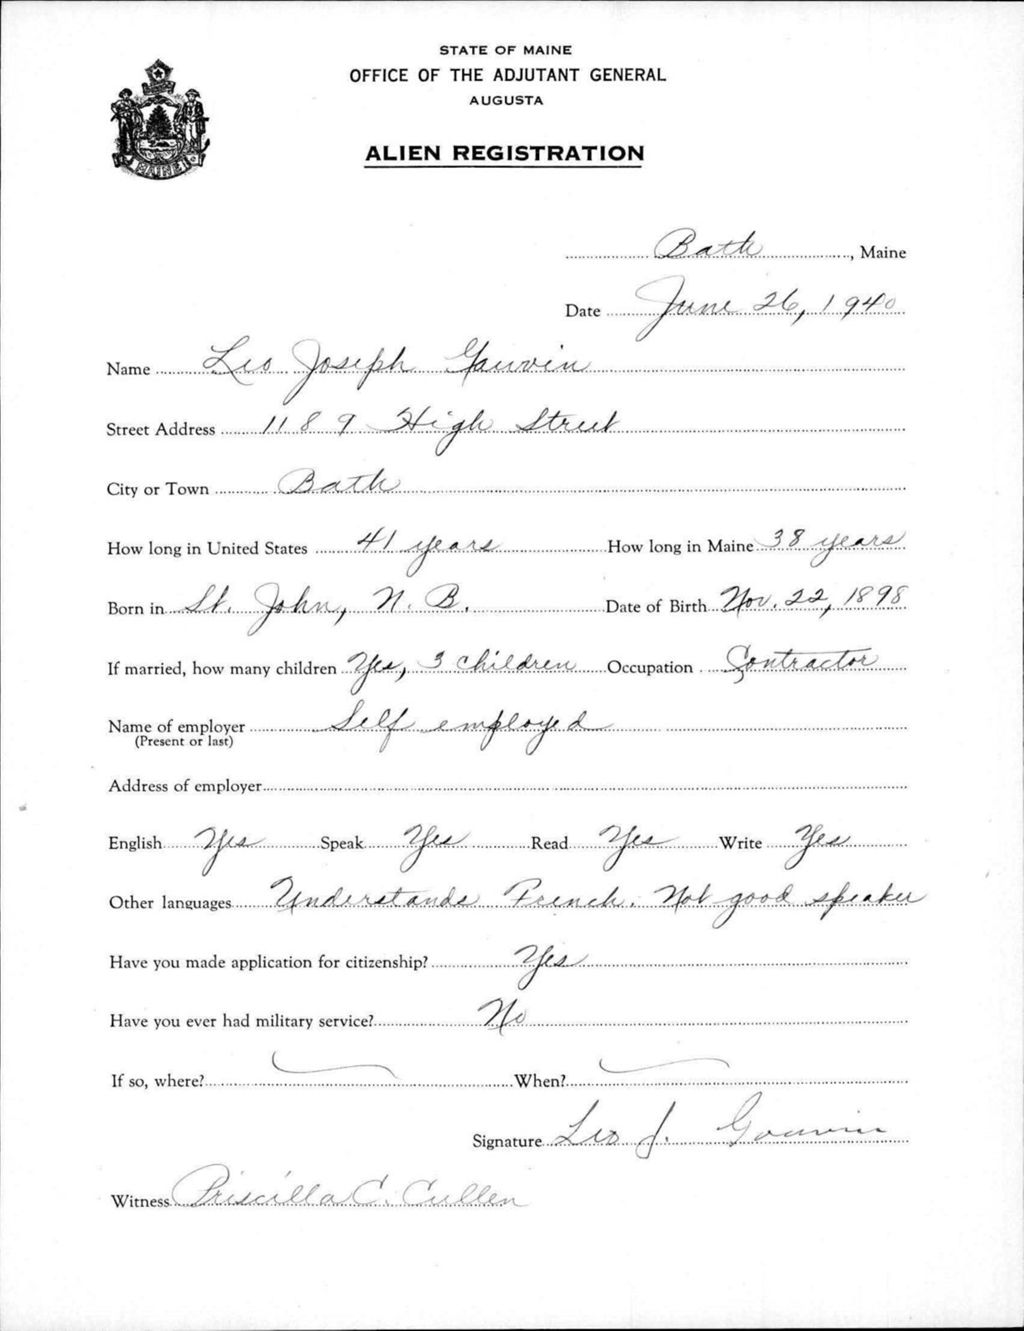 STATE OF MAINE
OFFICE OF THE ADJUTANT GENERAL
AUGUSTA
ALIEN REGISTRATION
MAINE
Bath, Maine
Date June 26, 1940
Name Leo Joseph Gauvin
Street Address 1189 High Street
City or Town Bath
How long in United States 41 years How long in Maine 38 years
Born in St. John, N. B. Date of Birth Nov. 22, 1898
If married, how many children Yes, 3 children Occupation Contractor
Name of employer Self employed
(Present or last)
Address of employer
English Yes Speak Yes Read Yes Write Yes
Other languages Understands French. Not good speaker
Have you made application for citizenship? Yes
Have you ever had military service? No
If so, where? When?
Signature Leo J. Gauvin
Witness Priscilla C. Cullen